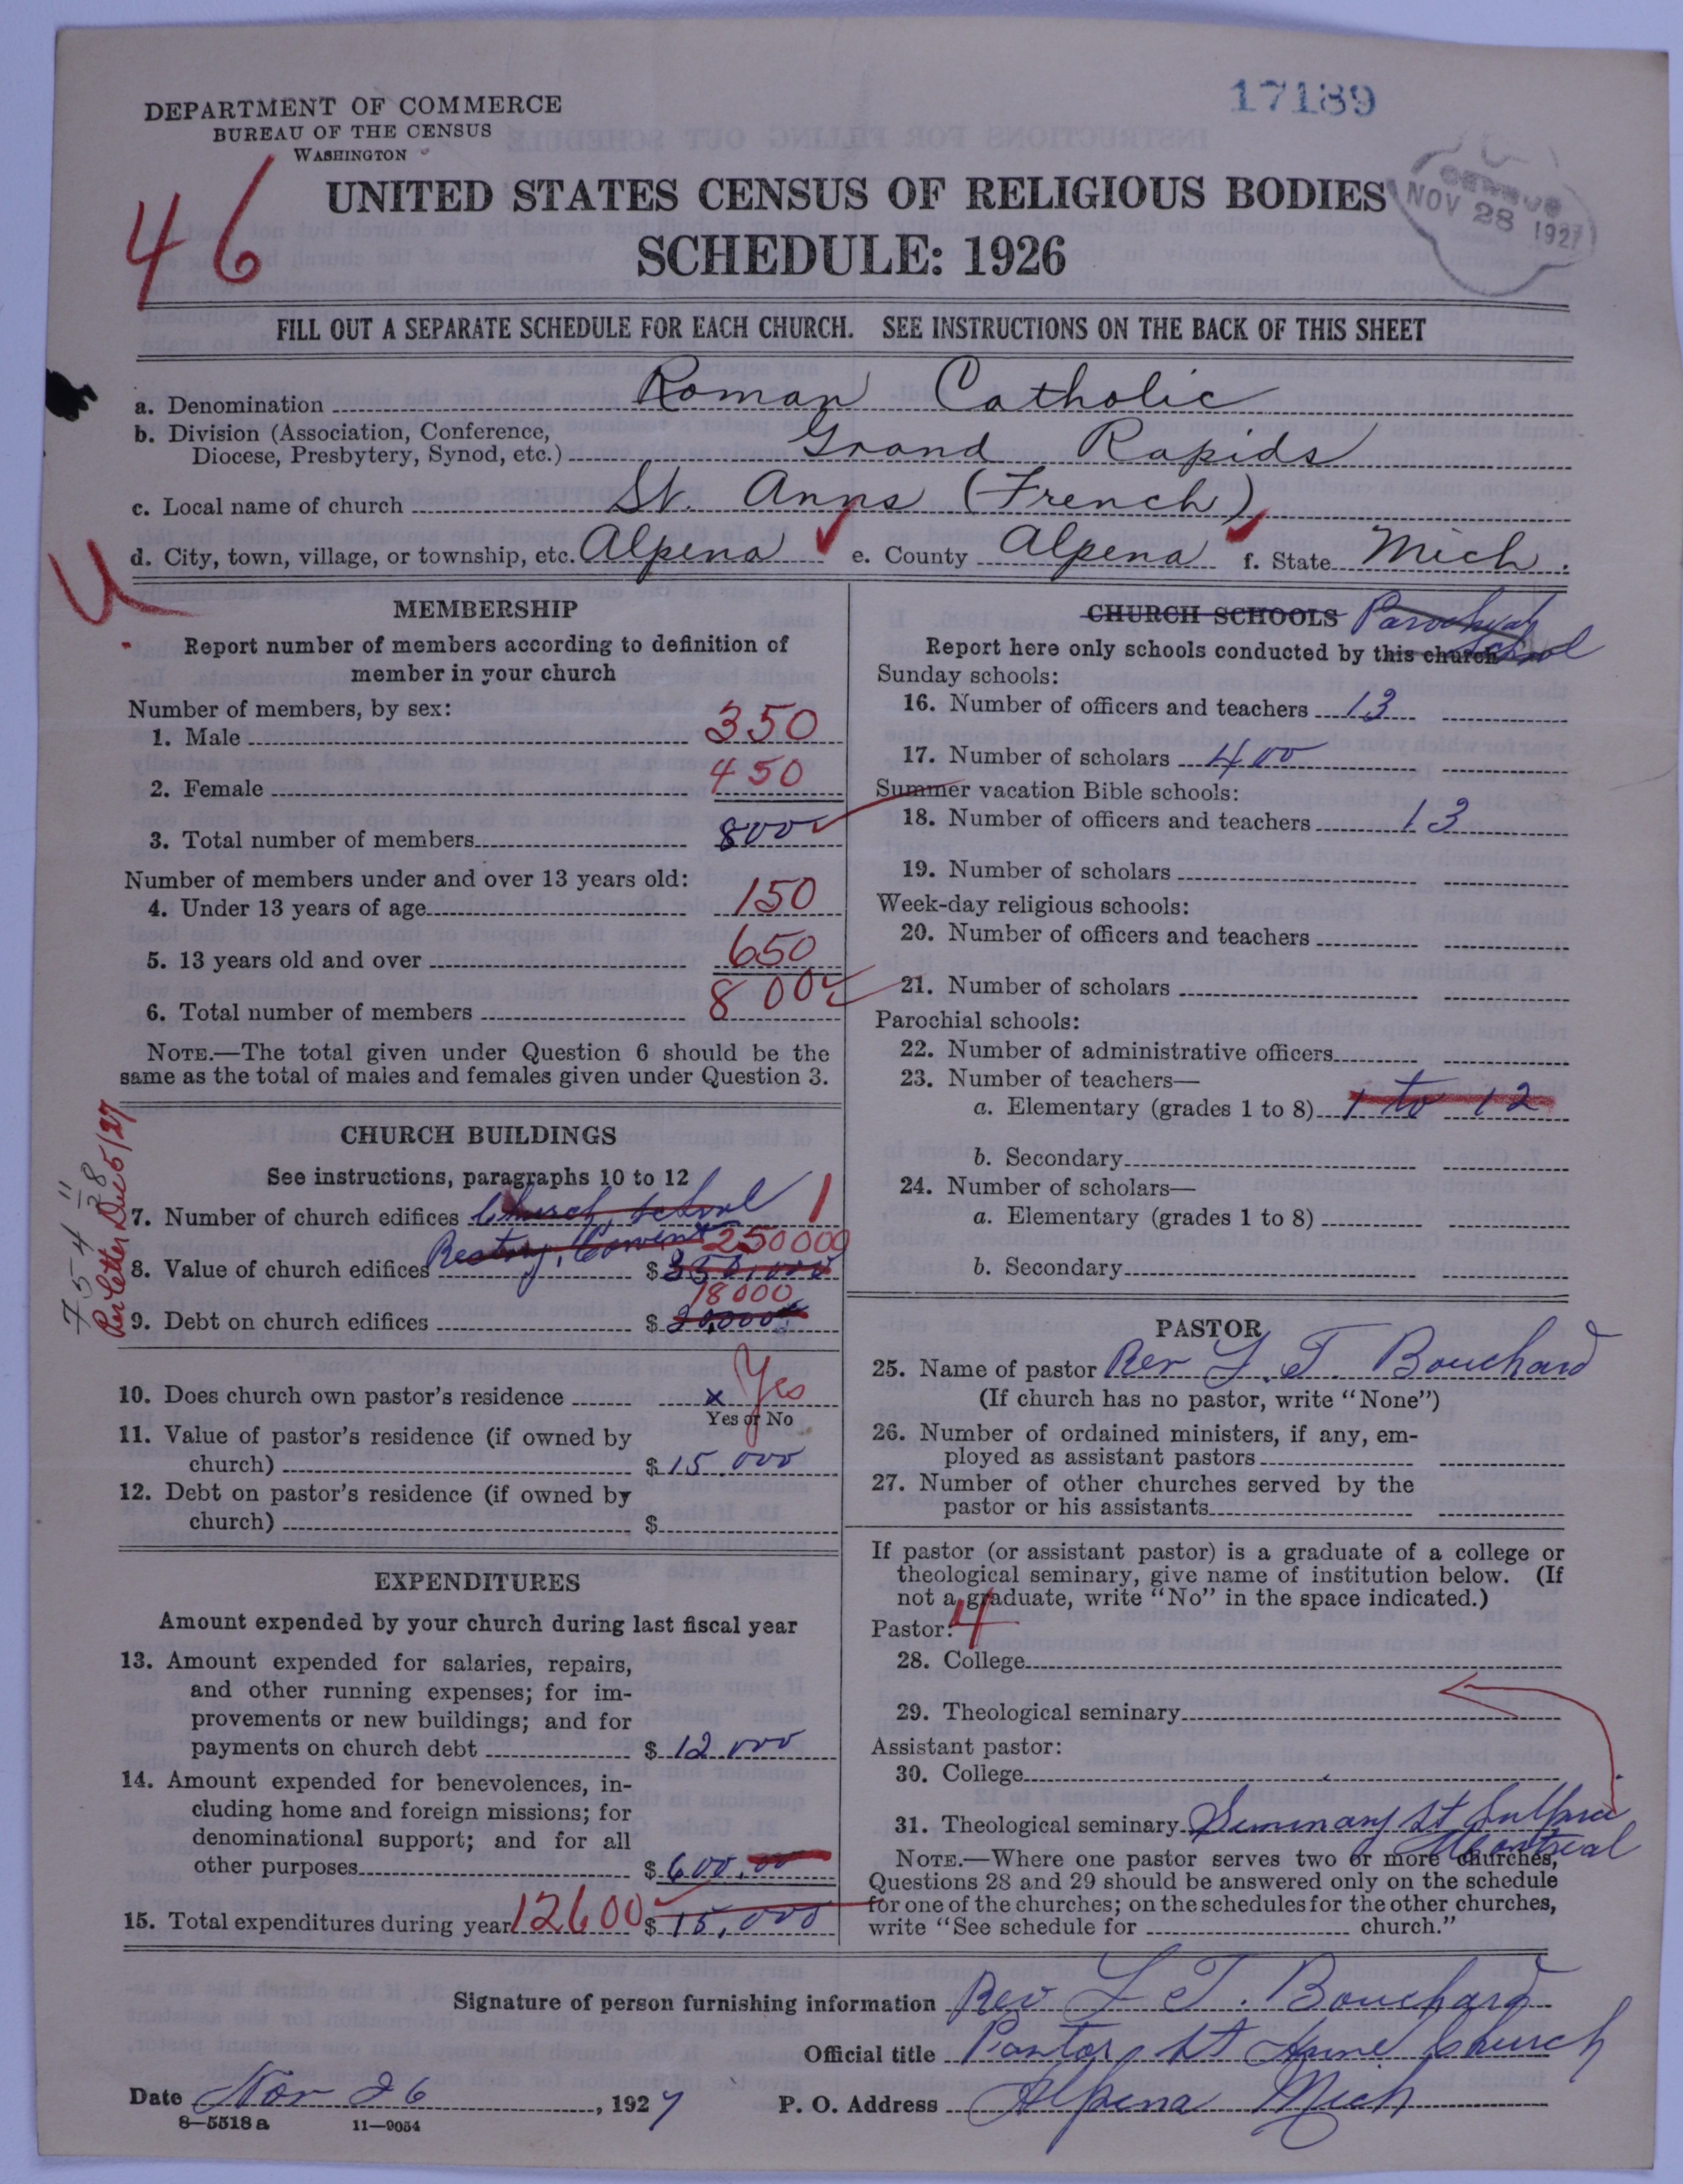 17189
DEPARTMENT OF COMMERCE
BUREAU OF THE CENSUS
WASHINGTON
46
UNITED STATES CENSUS OF RELIGIOUS BODIES
SCHEDULE: 1926
CENSUS
NOV 28 1927
FILL OUT A SEPARATE SCHEDULE FOR EACH CHURCH. SEE INSTRUCTIONS ON THE BACK OF THIS SHEET
a. Denomination Roman Catholic
b. Division (Association, Conference,
Diocese, Presbytery, Synod, etc.) Grand Rapids
c. Local name of church St. Anns (French)
d. City, town, village, or township, etc. Alpena e. County Alpena f. State Mich.
MEMBERSHIP
Report number of members according to definition of
member in your church
Number of members, by sex:
1. Male 350
2. Female 450
3. Total number of members 800
Number of members under and over 13 years old:
4. Under 13 years of age 150
5. 13 years old and over 650
6. Total number of members 800
NOTE.—The total given under Question 6 should be the
same as the total of males and females given under Question 3.
CHURCH BUILDINGS
See instructions, paragraphs 10 to 12
7. Number of church edifices Church, school 1
Rectory, Convent 250000
8. Value of church edifices $ 350,000
18000
9. Debt on church edifices $ 20,000
Per letter Dec 5/27
10. Does church own pastor's residence x Yes
Yes or No
11. Value of pastor's residence (if owned by
church) $ 15.000
12. Debt on pastor's residence (if owned by
church) $
EXPENDITURES
Amount expended by your church during last fiscal year
13. Amount expended for salaries, repairs,
and other running expenses; for im-
provements or new buildings; and for
payments on church debt $ 12.000
14. Amount expended for benevolences, in-
cluding home and foreign missions; for
denominational support; and for all
other purposes $ 600.00
15. Total expenditures during year 12600 $ 15,000
CHURCH SCHOOLS Parochial
School
Report here only schools conducted by this church
Sunday schools:
16. Number of officers and teachers 13
17. Number of scholars 400
Summer vacation Bible schools:
18. Number of officers and teachers 13
19. Number of scholars
Week-day religious schools:
20. Number of officers and teachers
21. Number of scholars
Parochial schools:
22. Number of administrative officers
23. Number of teachers—
a. Elementary (grades 1 to 8) 1 to 12
b. Secondary
24. Number of scholars—
a. Elementary (grades 1 to 8)
b. Secondary
PASTOR
25. Name of pastor Rev L. T. Bouchard
(If church has no pastor, write "None")
26. Number of ordained ministers, if any, em-
ployed as assistant pastors
27. Number of other churches served by the
pastor or his assistants
If pastor (or assistant pastor) is a graduate of a college or
theological seminary, give name of institution below. (If
not a graduate, write "No" in the space indicated.)
Pastor: 4
28. College
29. Theological seminary
Assistant pastor:
30. College
31. Theological seminary Seminary St Sulpice
Montreal
NOTE.—Where one pastor serves two or more churches,
Questions 28 and 29 should be answered only on the schedule
for one of the churches; on the schedules for the other churches,
write "See schedule for church."
Signature of person furnishing information Rev L T. Bouchard
Official title Pastor St Anne Church
Date Nov 26, 1927 P. O. Address Alpena Mich
8—5518a 11—9054